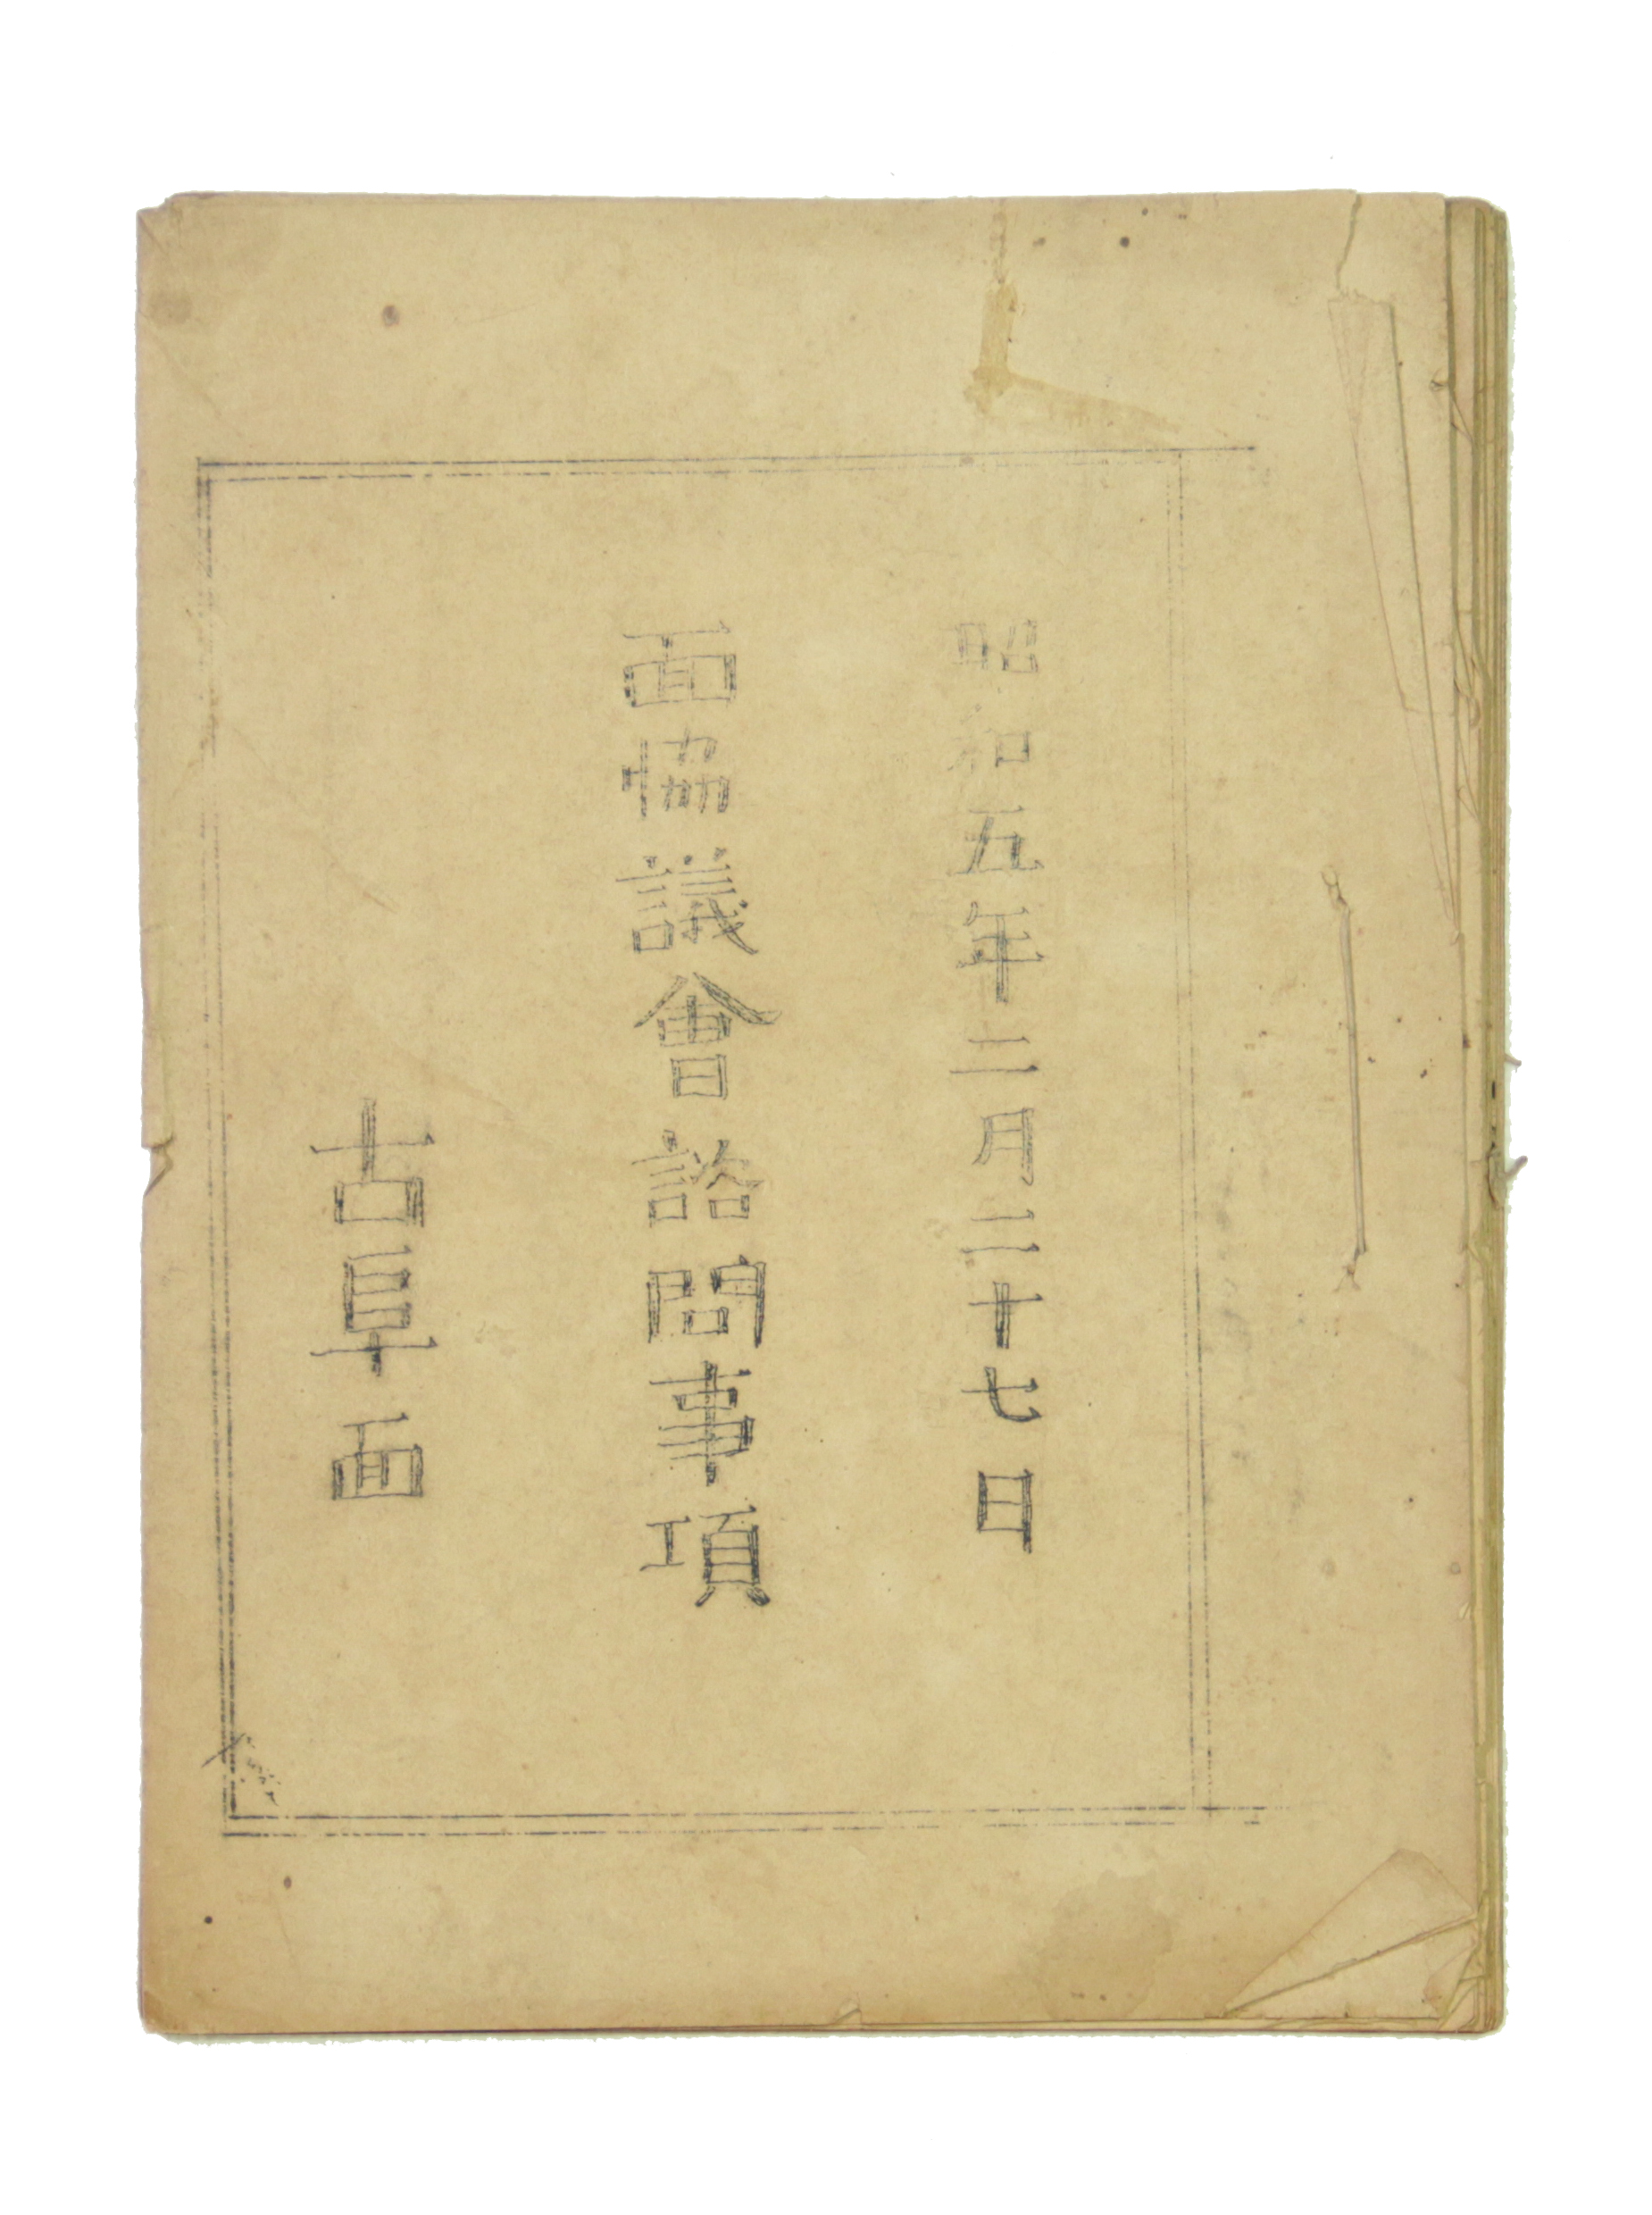 昭和五年二月二十七日
面協議會諮問事項
古阜面